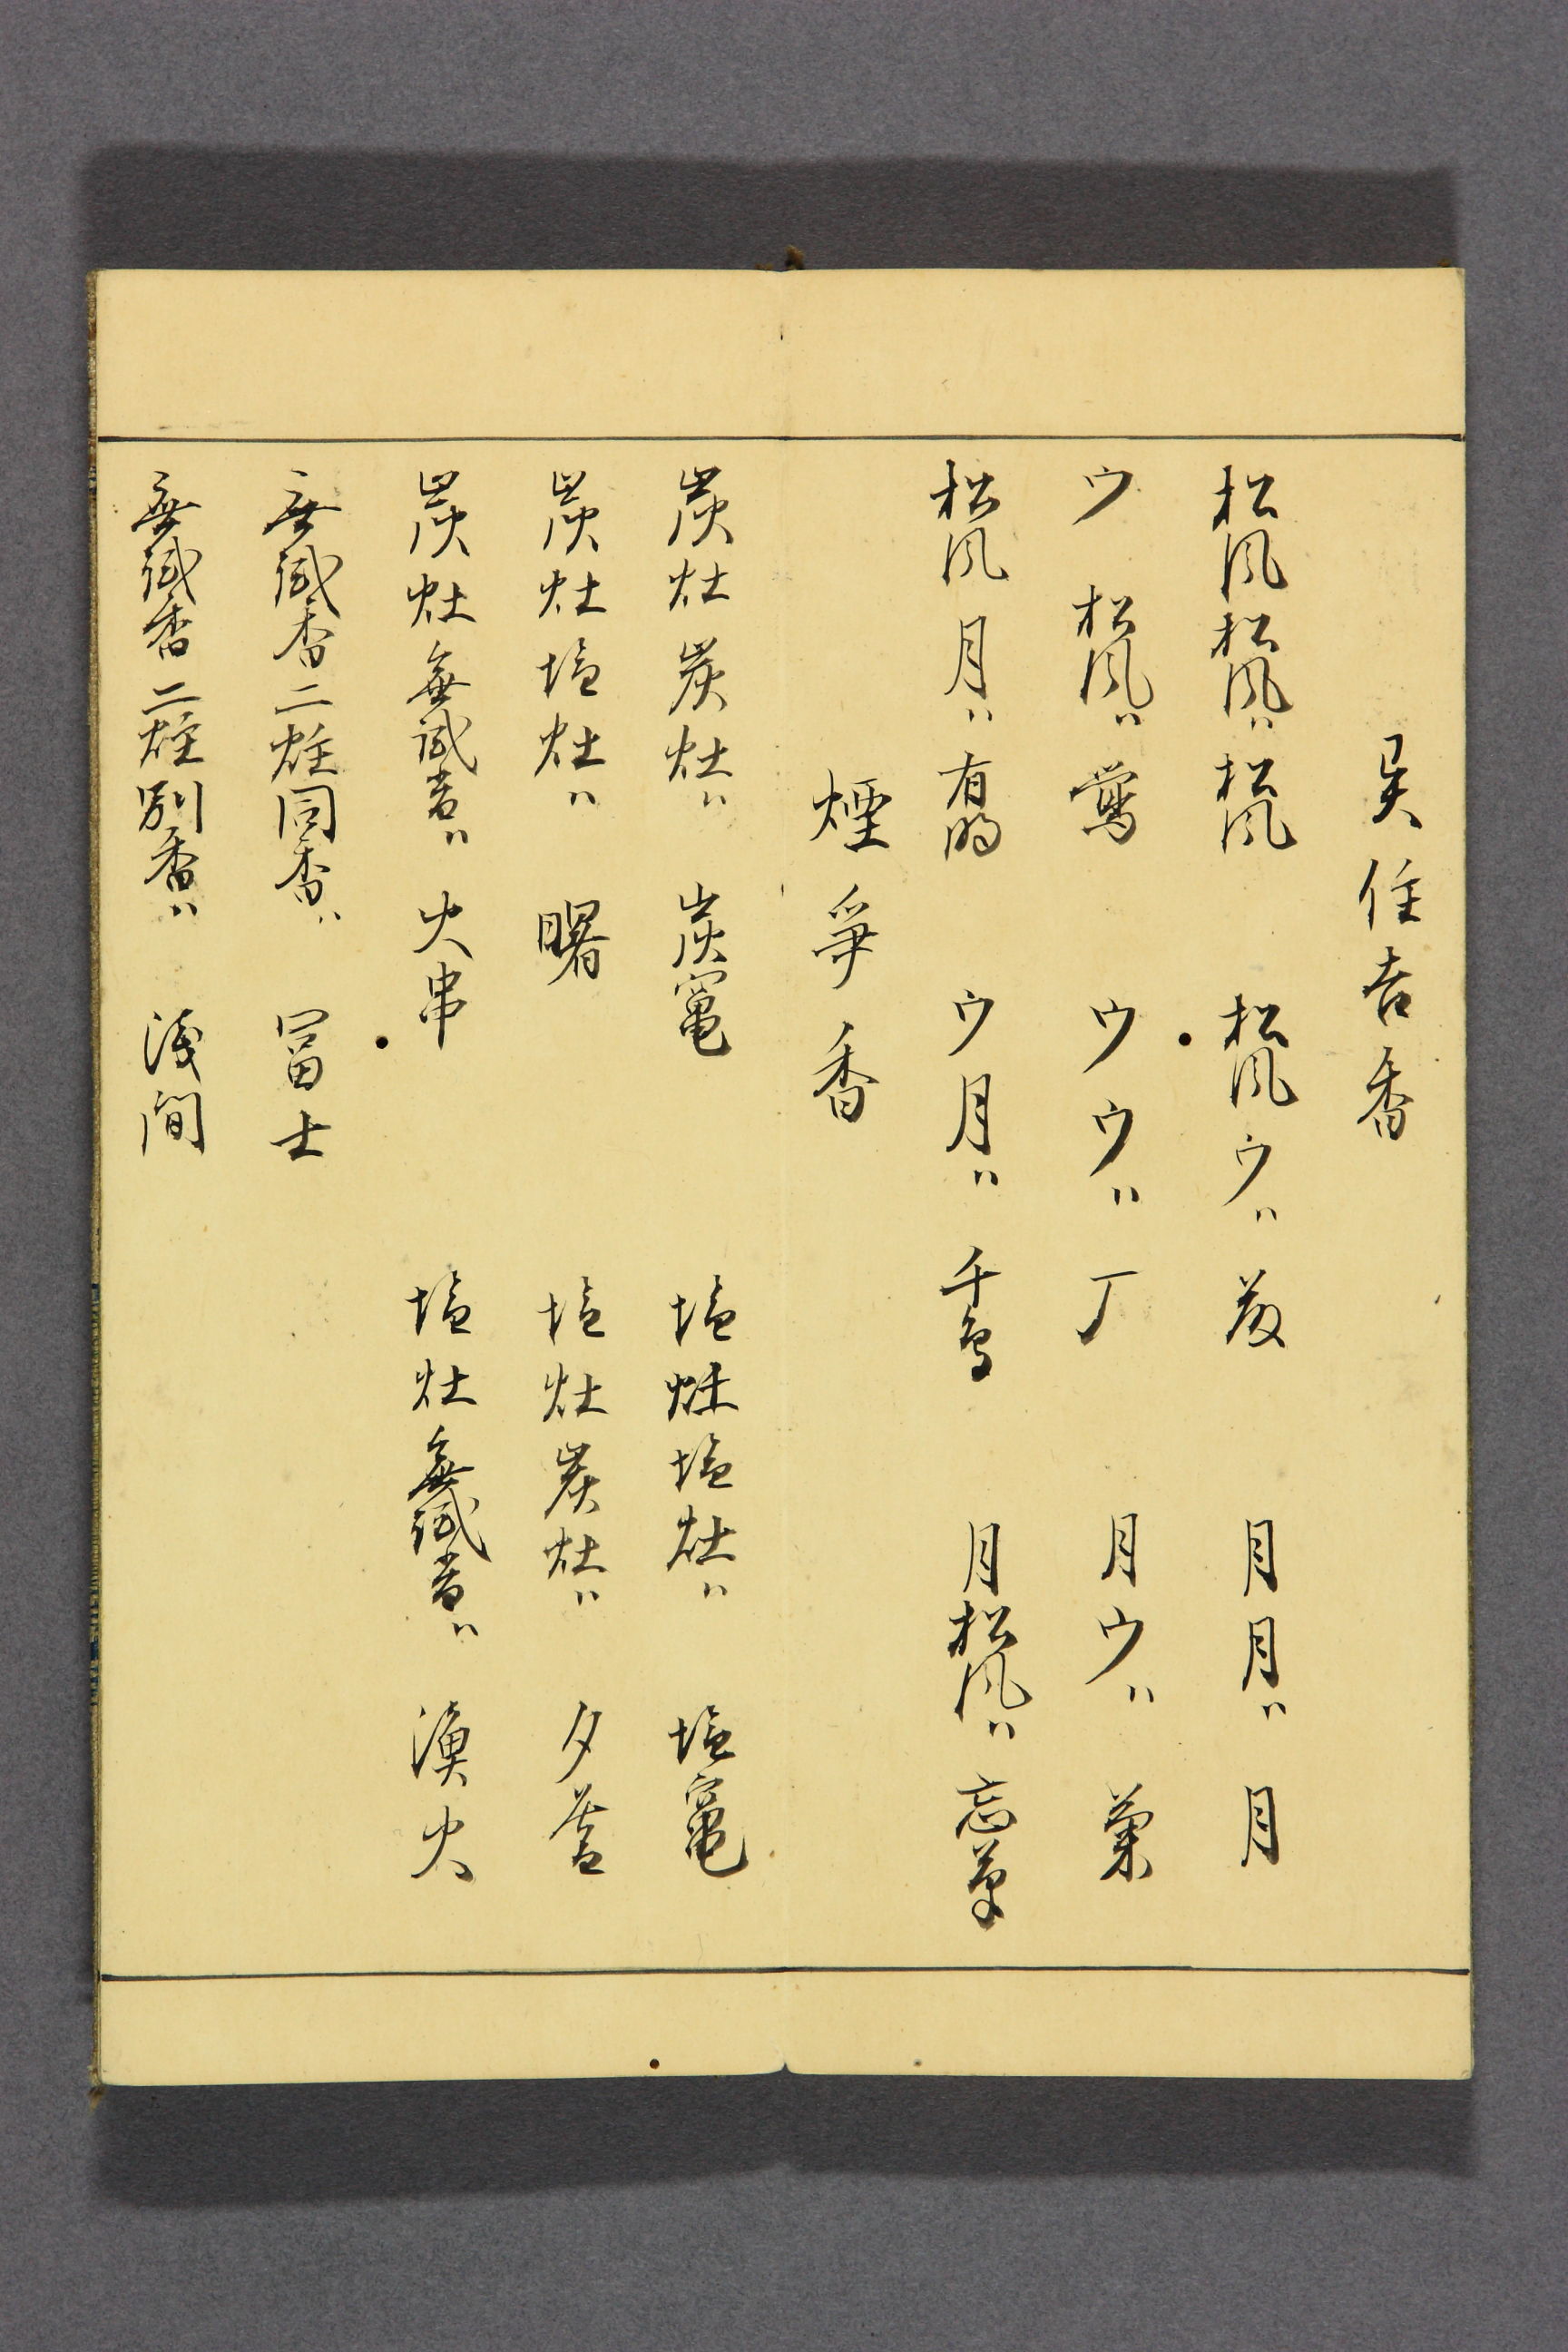 異住吉香
松風松風ハ松風 松風ウハ蔽 月月ハ月
ウ松風ハ鶯 ウウハ丁 月ウハ菊
松風月ハ有明 ウ月ハ千鳥 月松風ハ忘草
煙爭香
炭灶炭灶ハ 炭竃 塩灶塩灶ハ 塩竃
炭灶塩灶ハ 曙 塩灶炭灶ハ 夕暮
炭灶無試香ハ 火串 塩灶無試香ハ 漁火
無試香二炷同香ハ 冨士
無試香二炷別香ハ 浅間